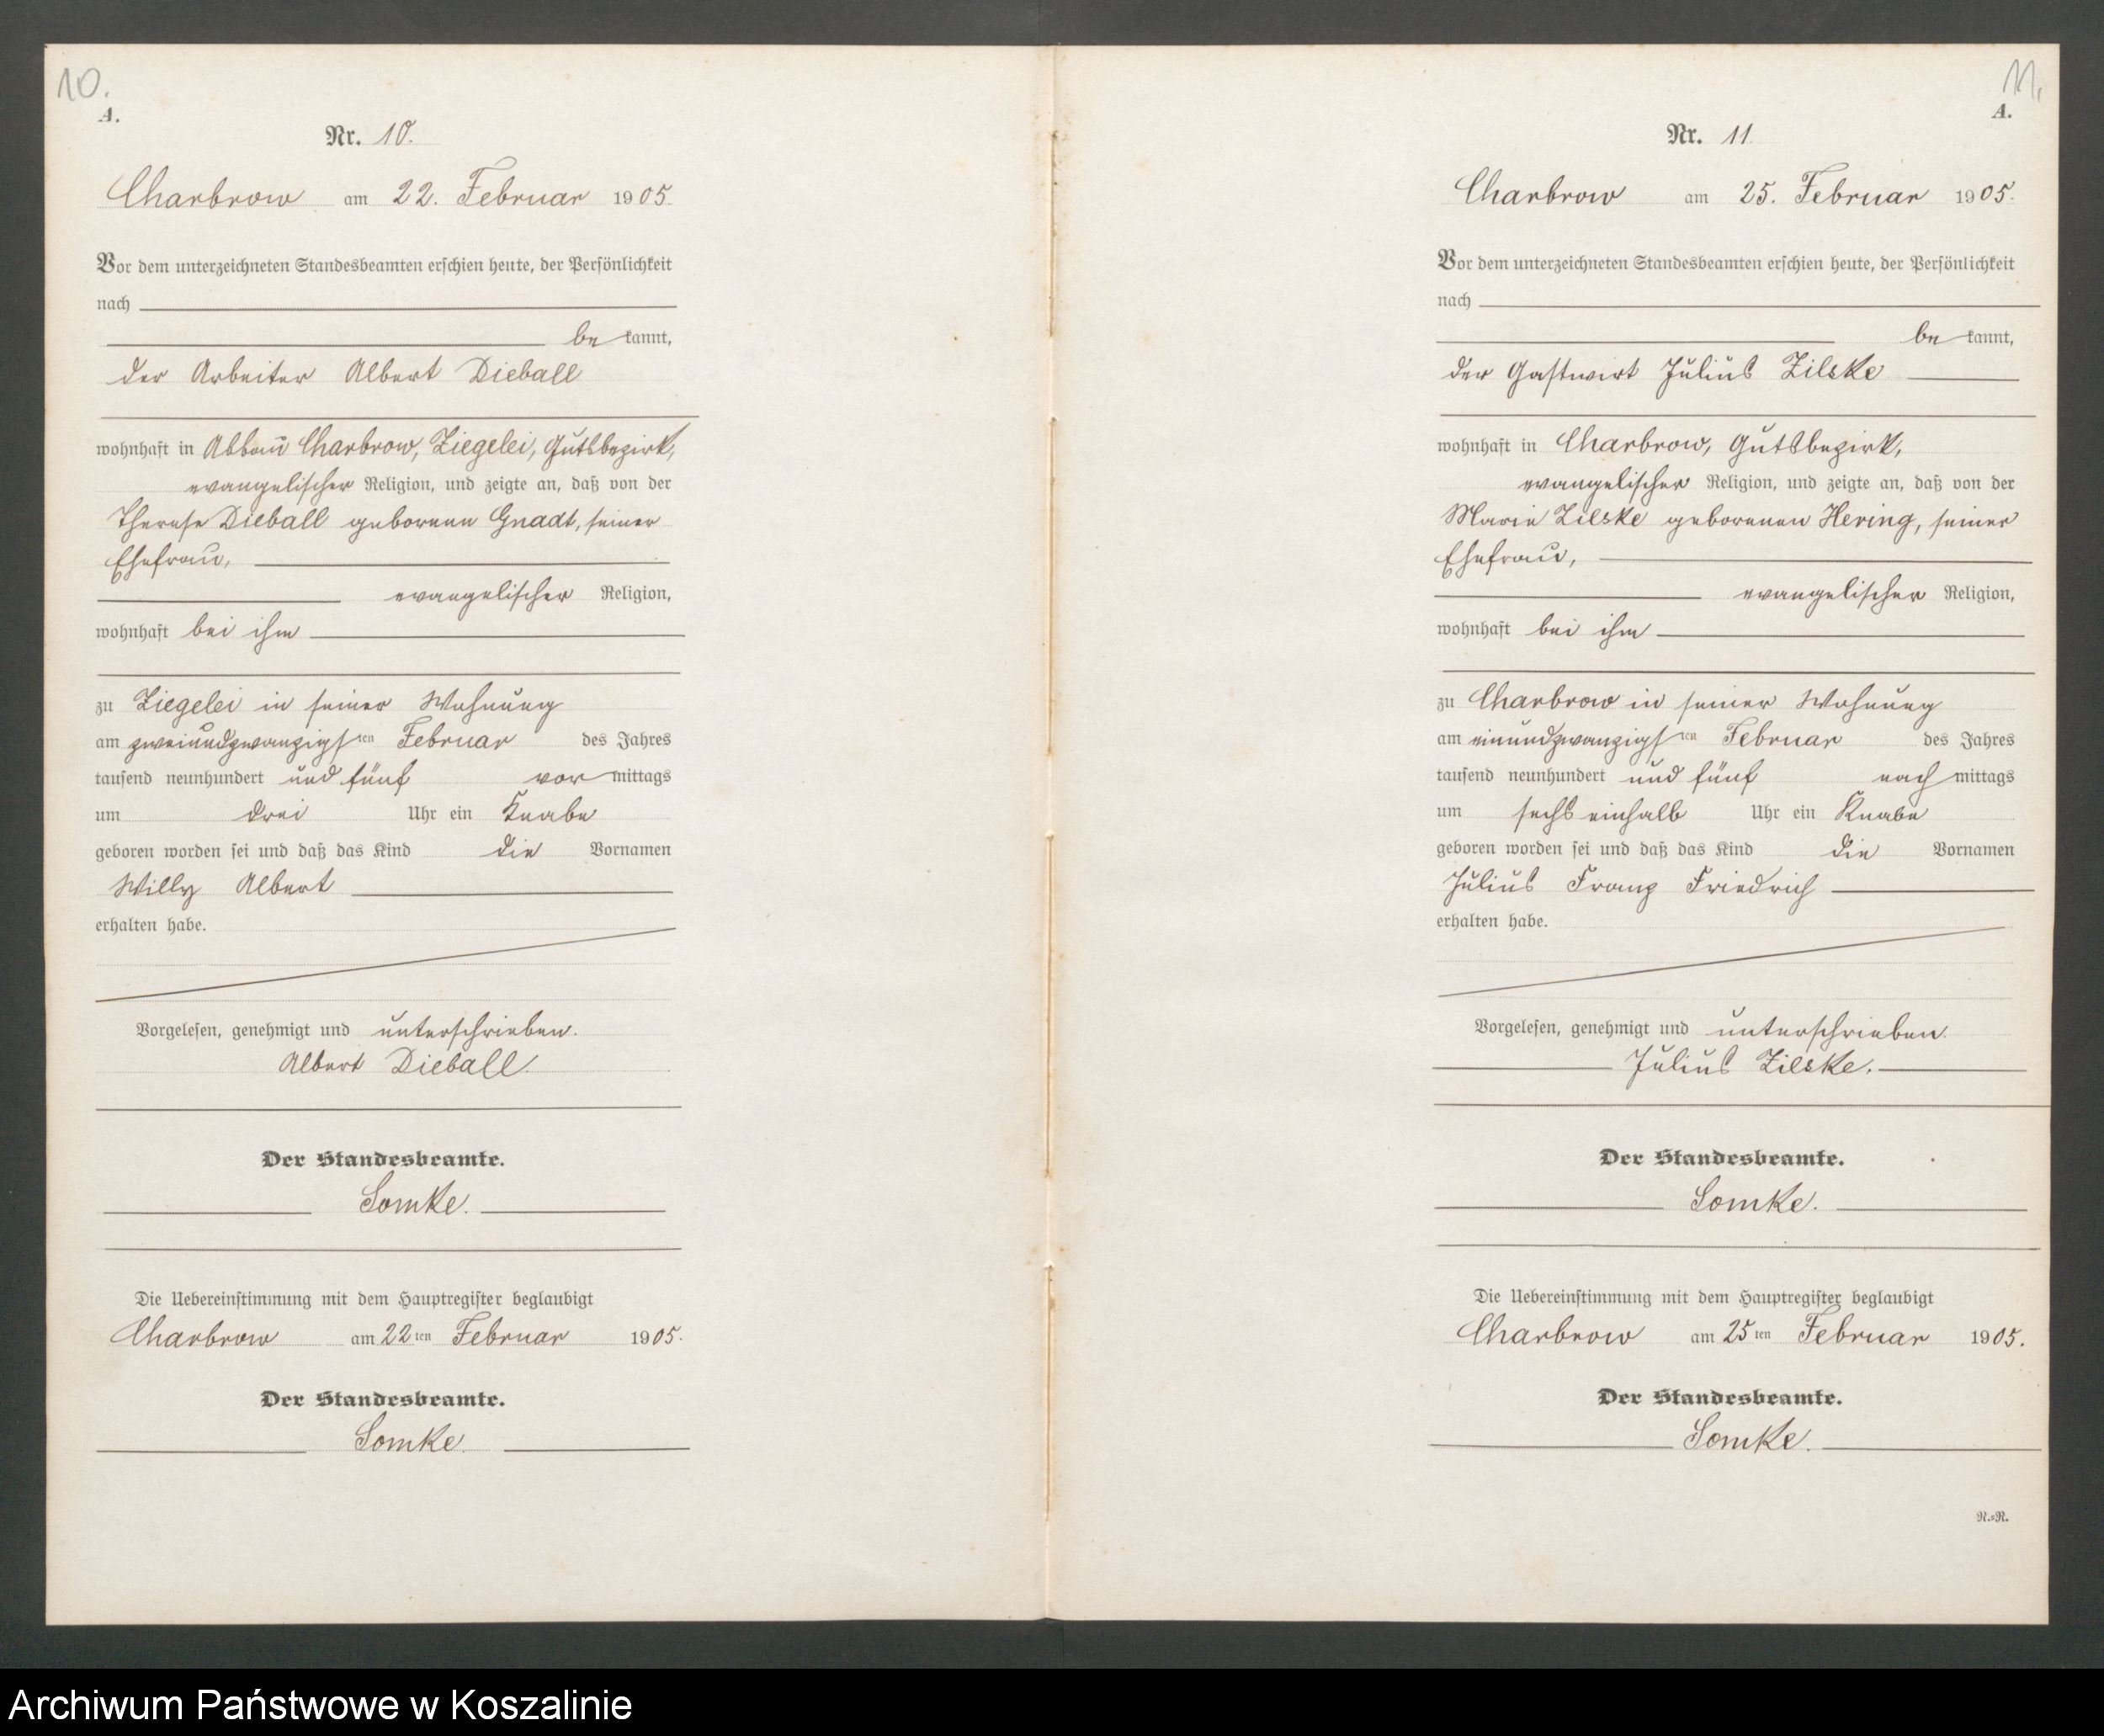 10.
A.
Nr. 10.
Charbrow am 22. Februar 1905.
Vor dem unterzeichneten Standesbeamten erschien heute, der Persönlichkeit
nach
be kannt,
der Arbeiter Albert Dieball
wohnhaft in Abbau Charbrow, Ziegelei, Gutsbezirk,
evangelischer Religion, und zeigte an, daß von der
Therese Dieball geborenen Gnadt, seiner
Ehefrau,
evangelischer Religion,
wohnhaft bei ihm
zu Ziegelei in seiner Wohnung
am zweiundzwanzigsten Februar des Jahres
tausend neunhundert und fünf vor mittags
um drei Uhr ein Knabe
geboren worden sei und daß das Kind die Vornamen
Willy Albert
erhalten habe.
Vorgelesen, genehmigt und unterschrieben.
Albert Dieball.
Der Standesbeamte.
Somke.
Die Uebereinstimmung mit dem Hauptregister beglaubigt
Charbrow am 22ten Februar 1905.
Der Standesbeamte.
Somke.
11.
A.
Nr. 11
Charbrow am 25. Februar 1905.
Vor dem unterzeichneten Standesbeamten erschien heute, der Persönlichkeit
nach
be kannt,
der Gastwirt Julius Zilske
wohnhaft in Charbrow, Gutsbezirk,
evangelischer Religion, und zeigte an, daß von der
Marie Zilske geborenen Hering, seiner
Ehefrau,
evangelischer Religion,
wohnhaft bei ihm
zu Charbrow in seiner Wohnung
am einundzwanzigsten Februar des Jahres
tausend neunhundert und fünf nach mittags
um sechs einhalb Uhr ein Knabe
geboren worden sei und daß das Kind die Vornamen
Julius Franz Friedrich
erhalten habe.
Vorgelesen, genehmigt und unterschrieben.
Julius Zilske.
Der Standesbeamte.
Somke.
Die Uebereinstimmung mit dem Hauptregister beglaubigt
Charbrow am 25ten Februar 1905.
Der Standesbeamte.
Somke.
N.=R.
Archiwum Państwowe w Koszalinie